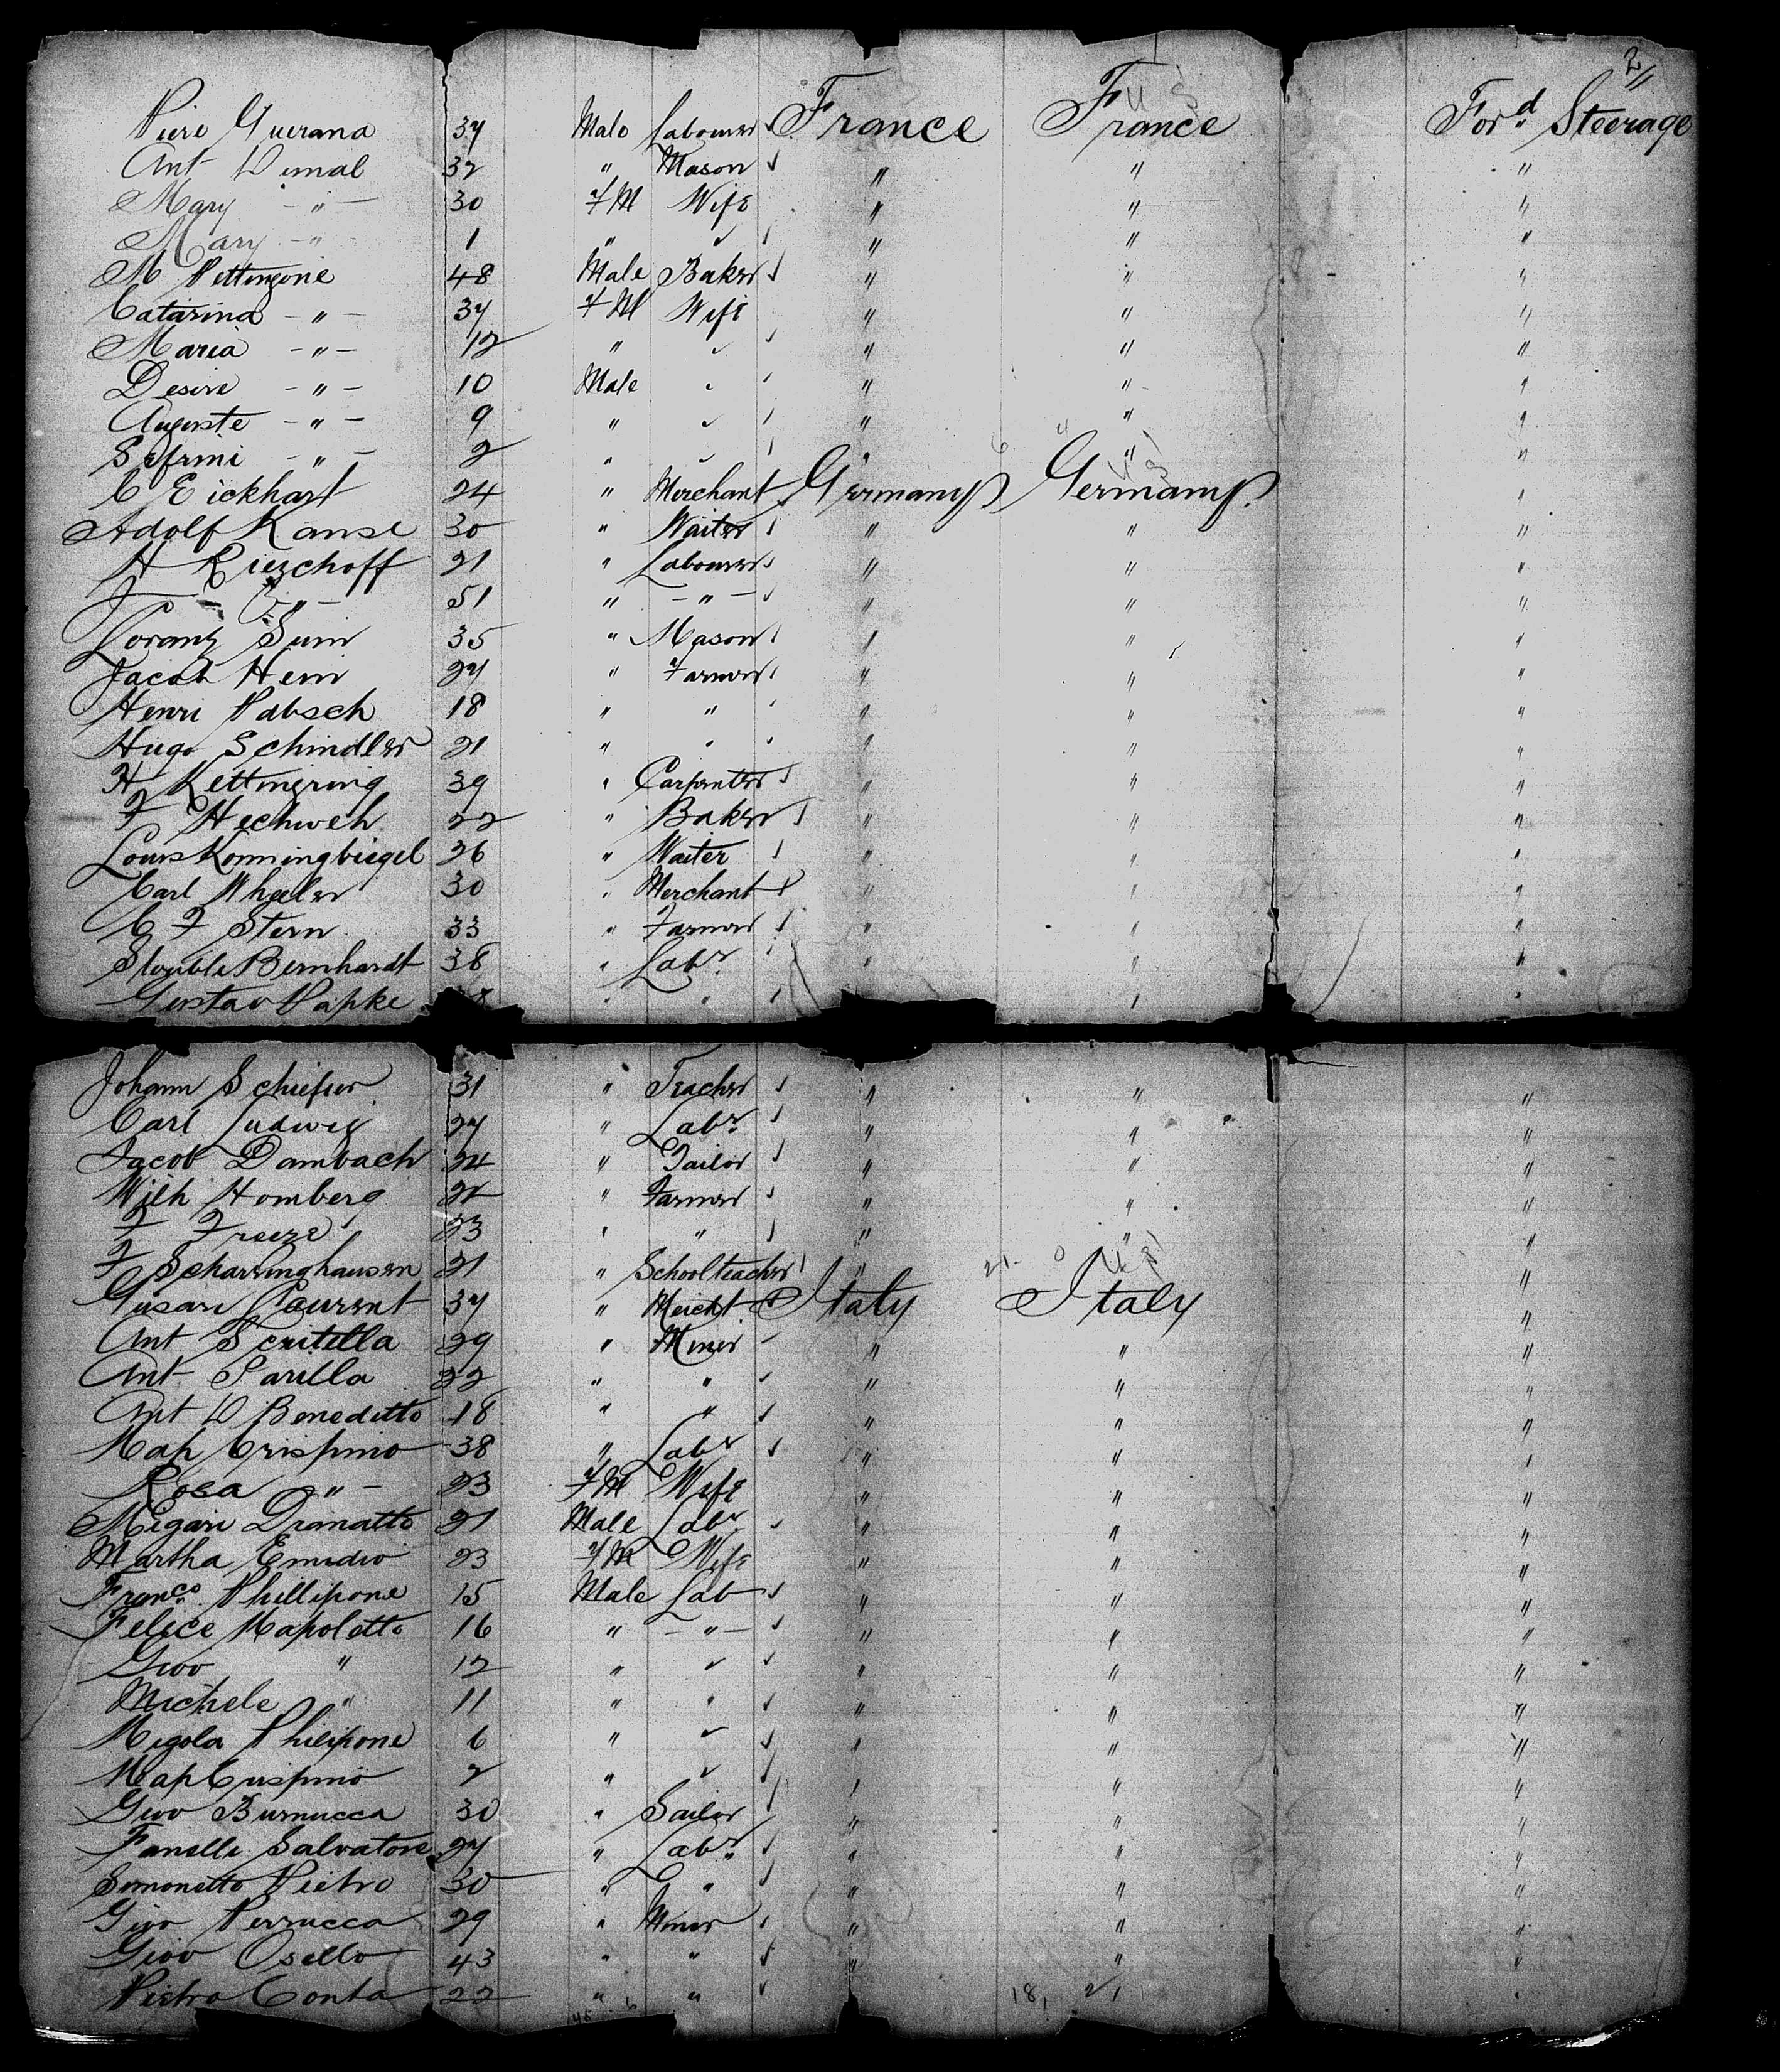 2/
Piere Guerana 37 Male Labourer France France For'd Steerage
Ant Dimal 32 " Mason " " "
Mary - " - 30 FM Wife " " "
Mary - " - 1 " " " " "
M Pettingone 48 Male Baker " " "
Catarina - " - 37 FM Wife " " "
Maria - " - 12 " " " " "
Desire - " - 10 Male " " " "
Auguste - " - 9 " " " " "
- " - 2 " " " " "
C Eickhart 24 " Merchant Germany Germany "
Adolf Kanse 30 " Waiter " " "
H Kirschoff 21 " Labourer " " "
J - " - 51 " - " - " " "
Lorantz Suin 35 " Mason " " "
Jacob Hein 27 " Farmer " " "
Henri Pabsch 18 " " " " "
Hugo Schindler 21 " " " " "
H Kettingring 39 " Carpenter " " "
F Hechweh 22 " Baker " " "
Louis Konningbiegel 26 " Waiter " " "
Carl Wheeler 30 " Merchant " " "
C F Stern 33 " Farmer " " "
Slouble Bernhardt 38 " Labr " " "
Gustav Papke " " " "
Johann Schiefer 31 " Teacher " " "
Carl Ludwig 27 " Labr " " "
Jacob Dambach 24 " Tailor " " "
Wilh Homberg 22 " Farmer " " "
F Freeze 23 " " " " "
F Scharringhausen 21 " Schoolteacher " "
Gusari Laurent 37 " Mercht Italy Italy "
Ant Scritella 29 " Miner " " "
Ant Sarilla 32 " " " " "
Ant D Benedetto 18 " " " " "
Map Crispino 38 " Labr " " "
Rosa " - 23 FM Wife " " "
Migari Dramatto 21 Male Labr " " "
Martha Emidio 23 FM Wife " " "
Franco Phillipone 15 Male Lab " " "
Felice Mapoletto 16 " - " - " " "
Giov " 12 " " " " "
Michele " 11 " " " " "
Migola Philipone 6 " " " " "
Map Crispino 2 " " " " "
Giov Burnucca 30 " Sailor " " "
Fanelli Salvatore 27 " Labr " " "
Simonetto Pietro 30 " " " " "
Giov Perrucca 29 " Miner " " "
Giov Osello 43 " " " " "
Pietro Conta 22 " "